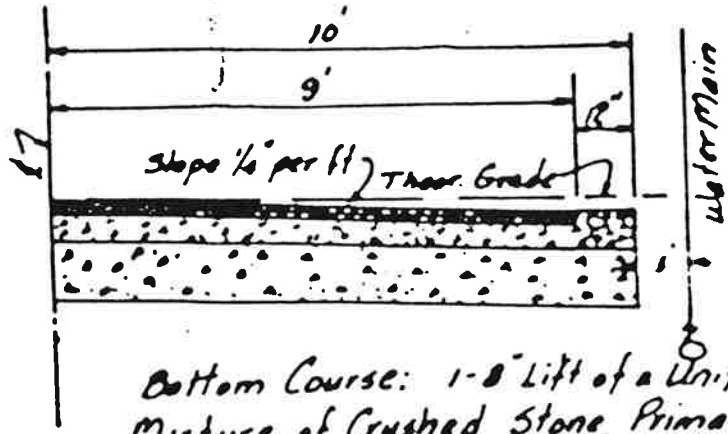 10'
9'
12"
Slope ¼" per ft
Theor. Grade
Water Main
Bottom Course: 1-8" Lift of a Unif
Mixture of Crushed Stone Prima